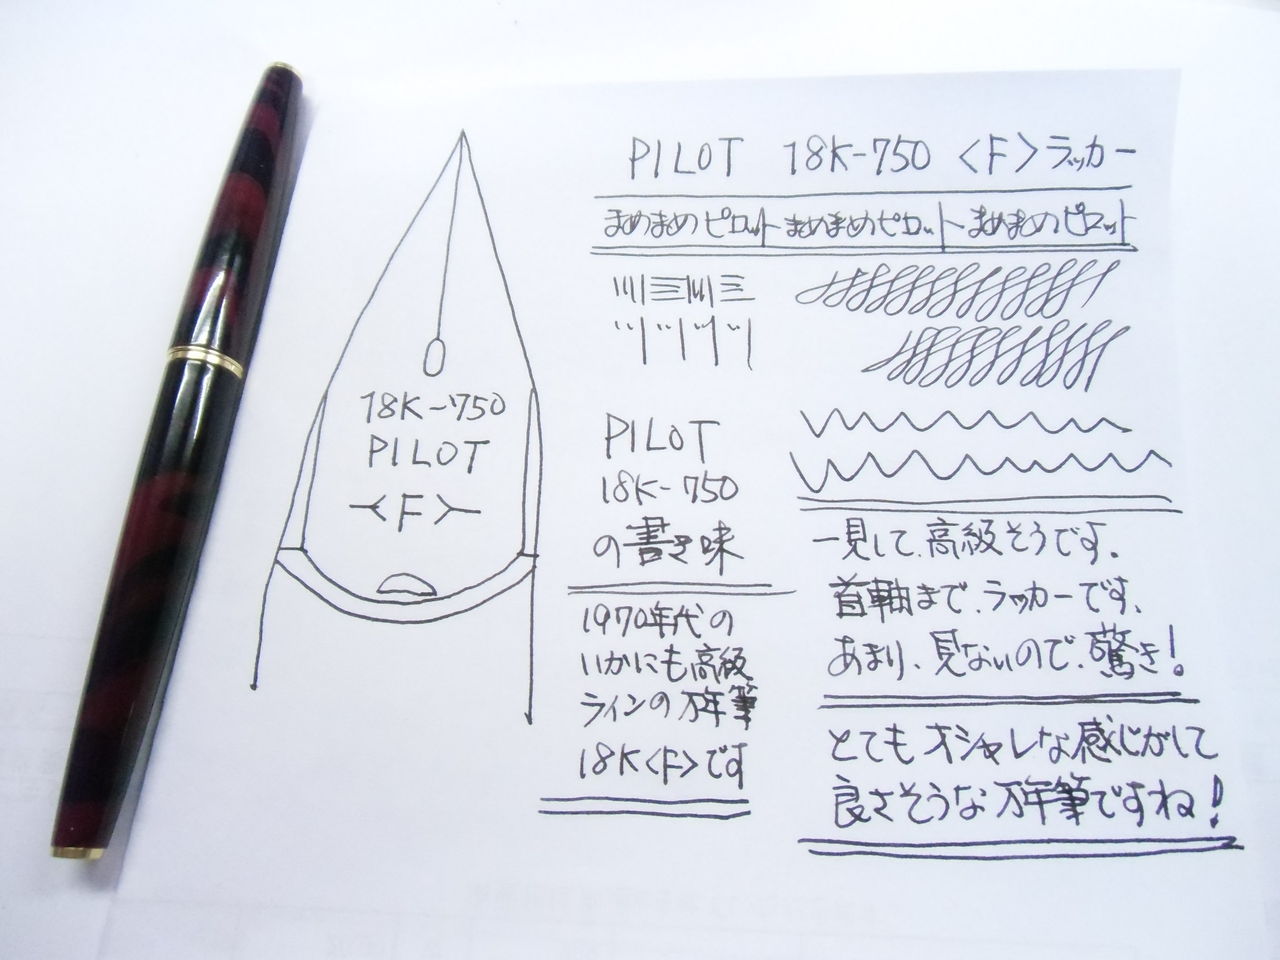 PILOT 18K-750 <F> ラッカー
まめまめピロット まめまめピロット まめまめピロット
18K-750
PILOT
<F>
PILOT
18K-750
の書き味
1970年代の
いかにも高級
ラインの万年筆
18K<F>です
一見して、高級そうです。
首軸まで、ラッカーです、
あまり、見ないので、驚き!
とてもオシャレな感じがして
良さそうな万年筆ですね!